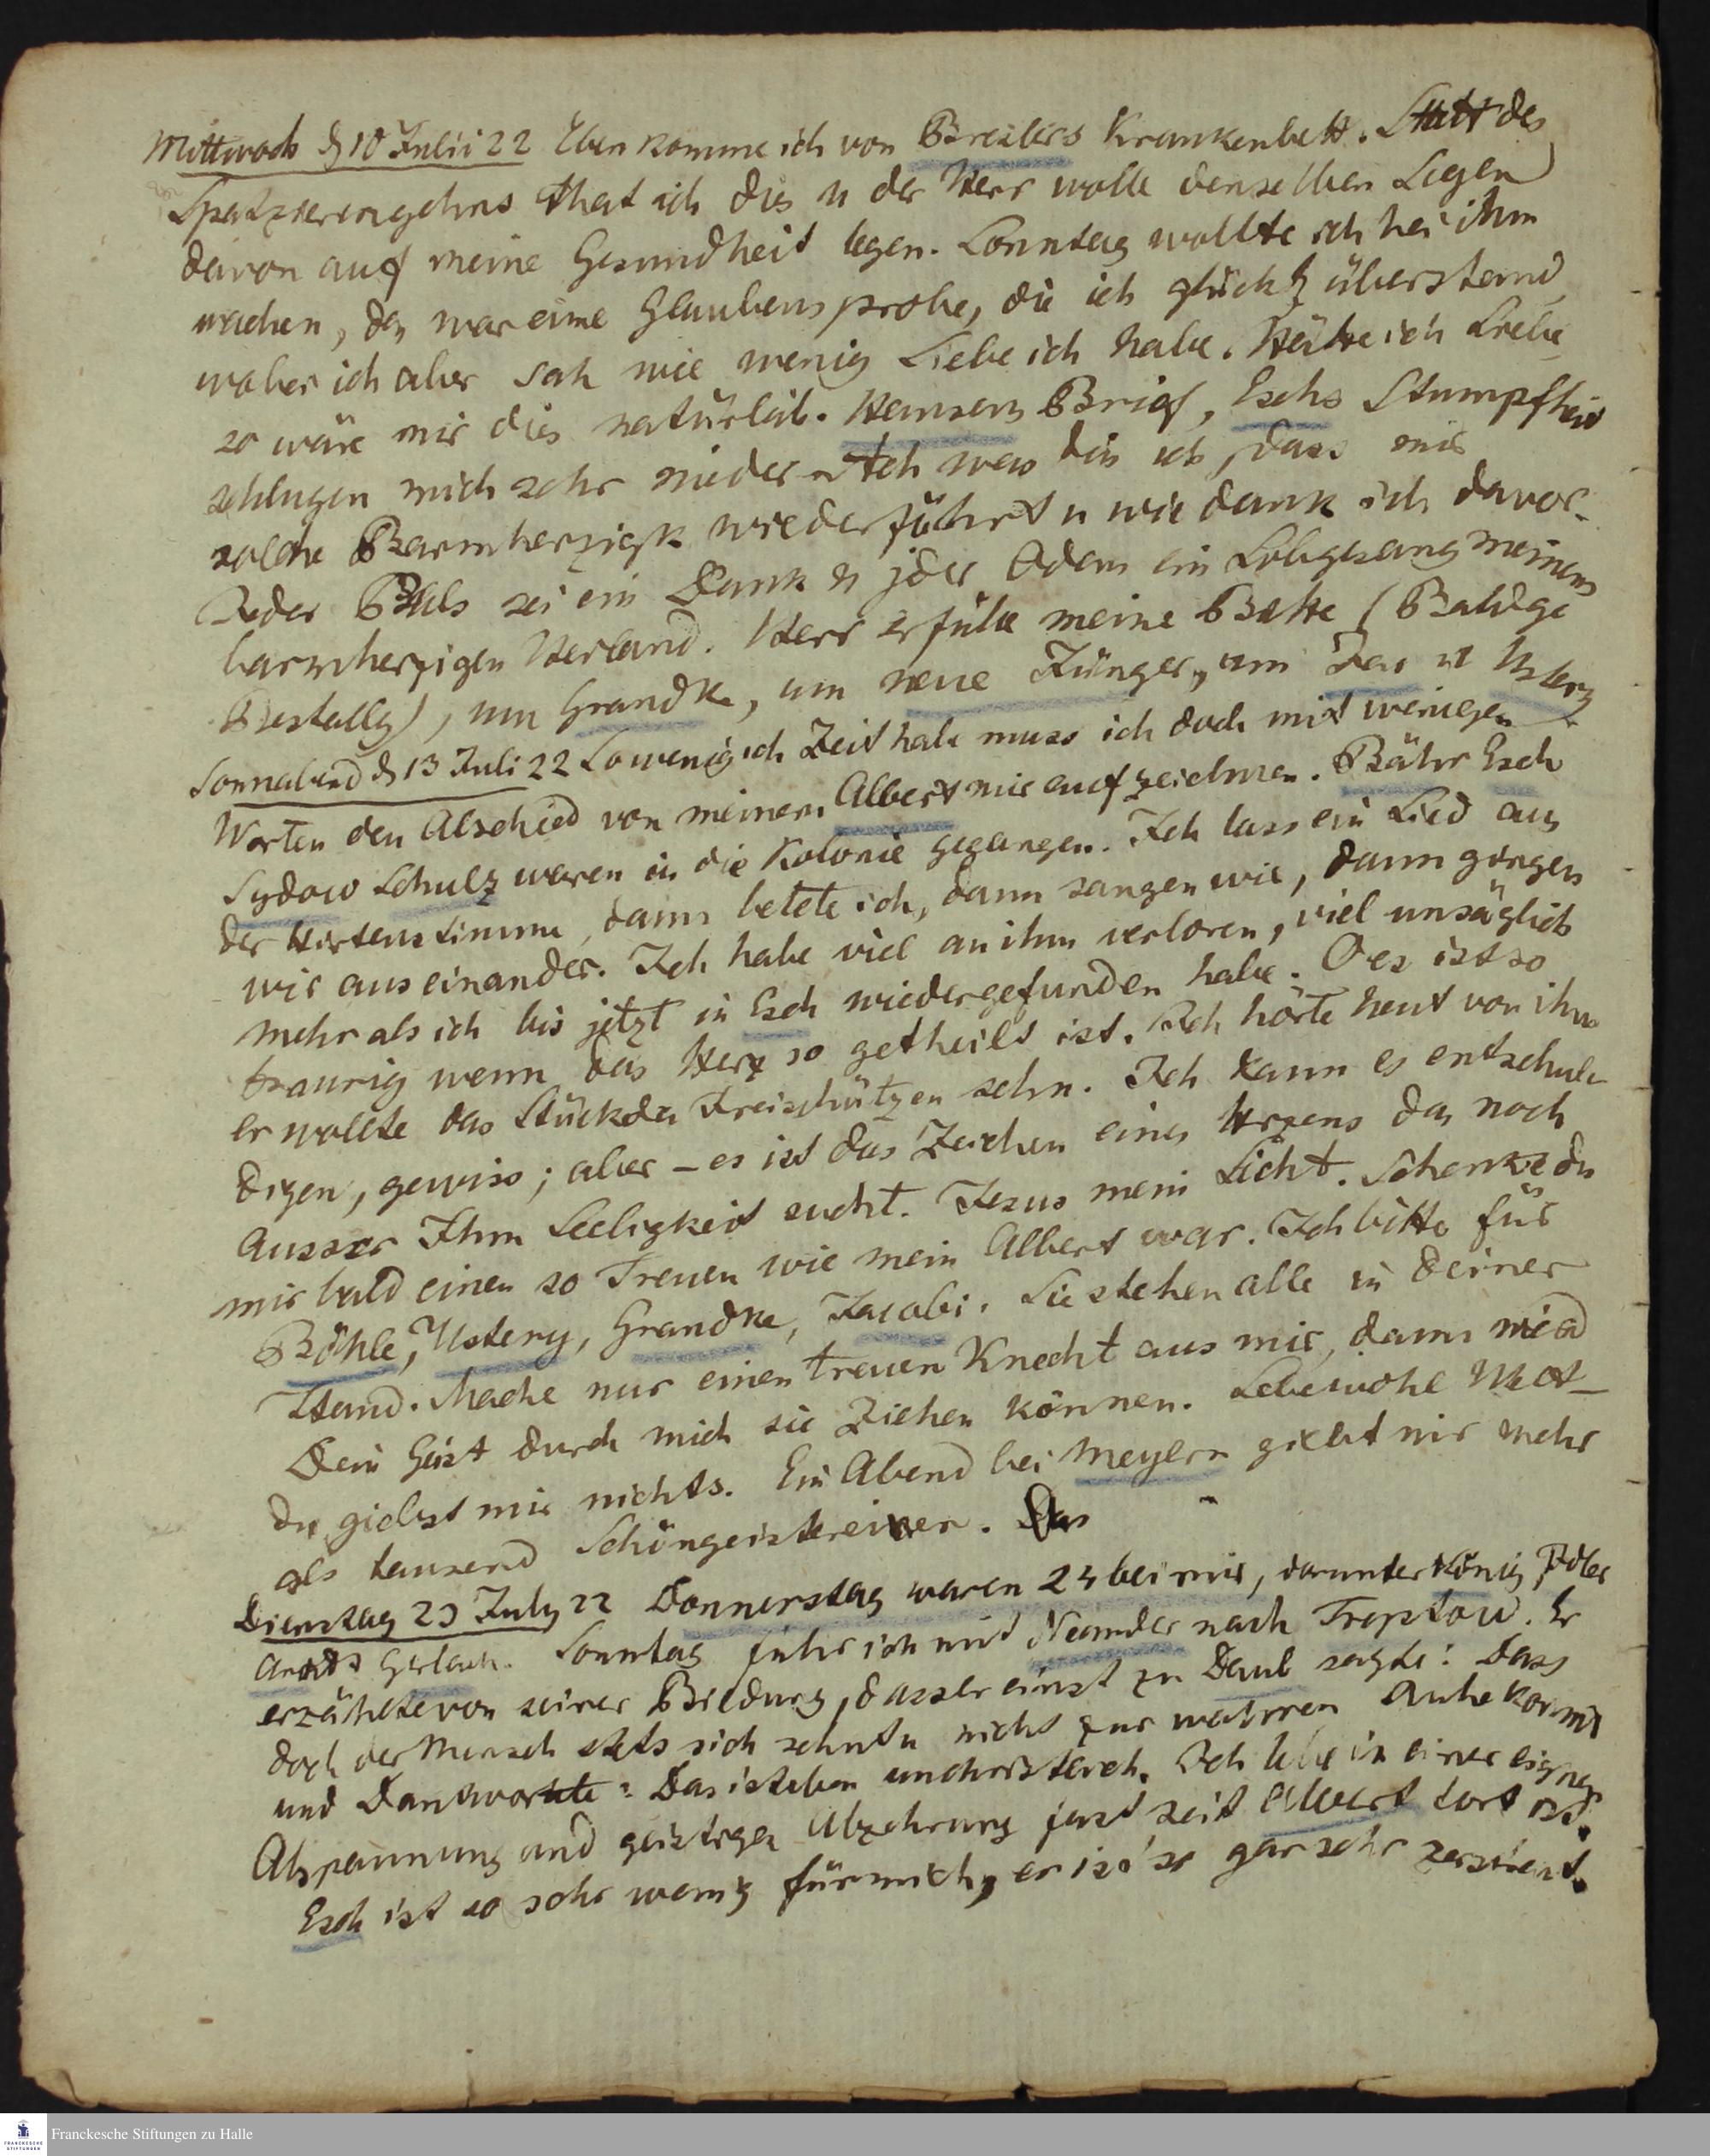 Mittwoch d 10 Julii 22 Eben komme ich von Breilers Krankenbett. Statt des
Spatzierengehns that ich dis u der Herr wolle denselben Segen
davon auf meine Gesundheit legen. Sonntag wollte ich bei ihm
wachen, das war eine Glaubensprobe, die ich glückl überstand
wobei ich aber sah wie wenig Liebe ich habe. Hätte ich Liebe
so wäre mir dies natürlich. Hansens Brief, Eschs Stumpfheit
schlugen mich sehr nieder. Ach was bin ich, dass mir
solche Barmherzigk wiederfährt u wie dank ich davor.
Jeder Puls sei ein Dank u jder Odem ein Lobgesang meinem
barmherzigen Heiland. Herr erfülle meine Bitte (Baldge
Bestallg), um Grandke, um neue Jünger, um Jac u Ustery
Sonnabend d 13 Juli 22 So wenig ich Zeit habe muss ich doch mit wenigen
Worten den Abschied von meinem Albert mir aufzeichnen. Bähr Esch
Sydow Schulz waren in die Kolonie gegangen. Ich lass ein Lied aus
der Hirtenstimme, dann betete ich, dann sangen wir, dann gingen
wir auseinander. Ich habe viel an ihm verloren, viel unsäglich
mehr als ich bis jetzt in Esch wiedergefunden habe. O es ist so
traurig wenn das Herz so getheilt ist. Ich hörte heut von ihm
er wollte das Stück der Freischützen sehn. Ich kann es entschul-
digen, gewiss; aber – es ist das Zeichen eines Herzens das noch
Ausser Ihm Seeligkeit sucht. Jesus mein Licht. Schenke du
mir bald einen so Treuen wie mein Albert war. Ich bitte für
Böhle, Ustery, Grandke, Jacobi. Sie stehen alle in Deiner
Hand. Mache nur einen treuen Knecht aus mir, dann wird
Dein Geist durch mich sie ziehen können. Lebewohl Welt –
du giebst mir nichts. Ein Abend bei Meyern giebt mir mehr
als tausend Schöngeistereien. Das
Dienstag 23 July 22 Donnerstag waren 24 bei mir, darunter König
Arndt Gerlach. Sonntag fuhr ich mit Neander nach Treptow. Er
erzählte von seiner Bildung, dass er einst zu Daub sagte: Dass
doch der Mensch stets sich sehnt u nicht zur wahren Ruhe kommt
und D antwortete: Das ist eben unchristlich. Ich lebe in einer eignen
Abspannung und geistigen Abzehrung fast seit Albert fort ist.
Esch ist so sehr wenig für mich, er ist so gar sehr zerstreut.
Franckesche Stiftungen zu Halle
FRANCKESCHE
STIFTUNGEN